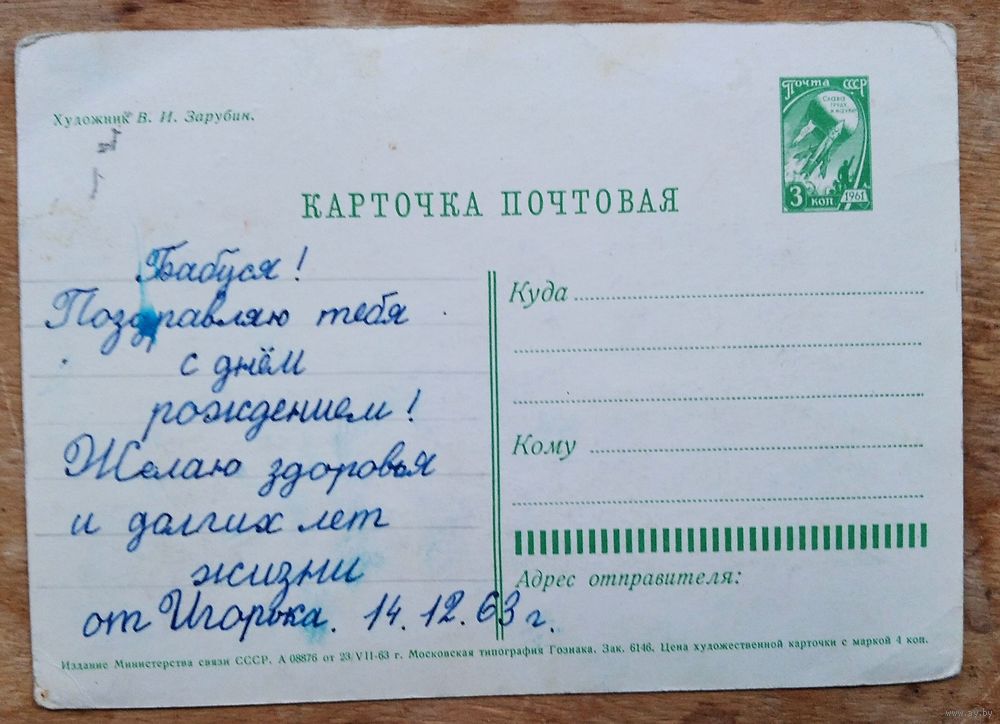 Художник В. И. Зарубин.
Почта СССР
Слава
труду
и науке
3 коп 1961
КАРТОЧКА ПОЧТОВАЯ
Бабуся!
Поздравляю тебя
с днём
рождением!
Желаю здоровья
и долгих лет
жизни
от Игорька. 14.12.63 г.
Куда
Кому
Адрес отправителя:
Издание Министерства связи СССР. А 08876 от 23/VII-63 г. Московская типография Гознака. Зак. 6146. Цена художественной карточки с маркой 4 коп.
www.ay.by